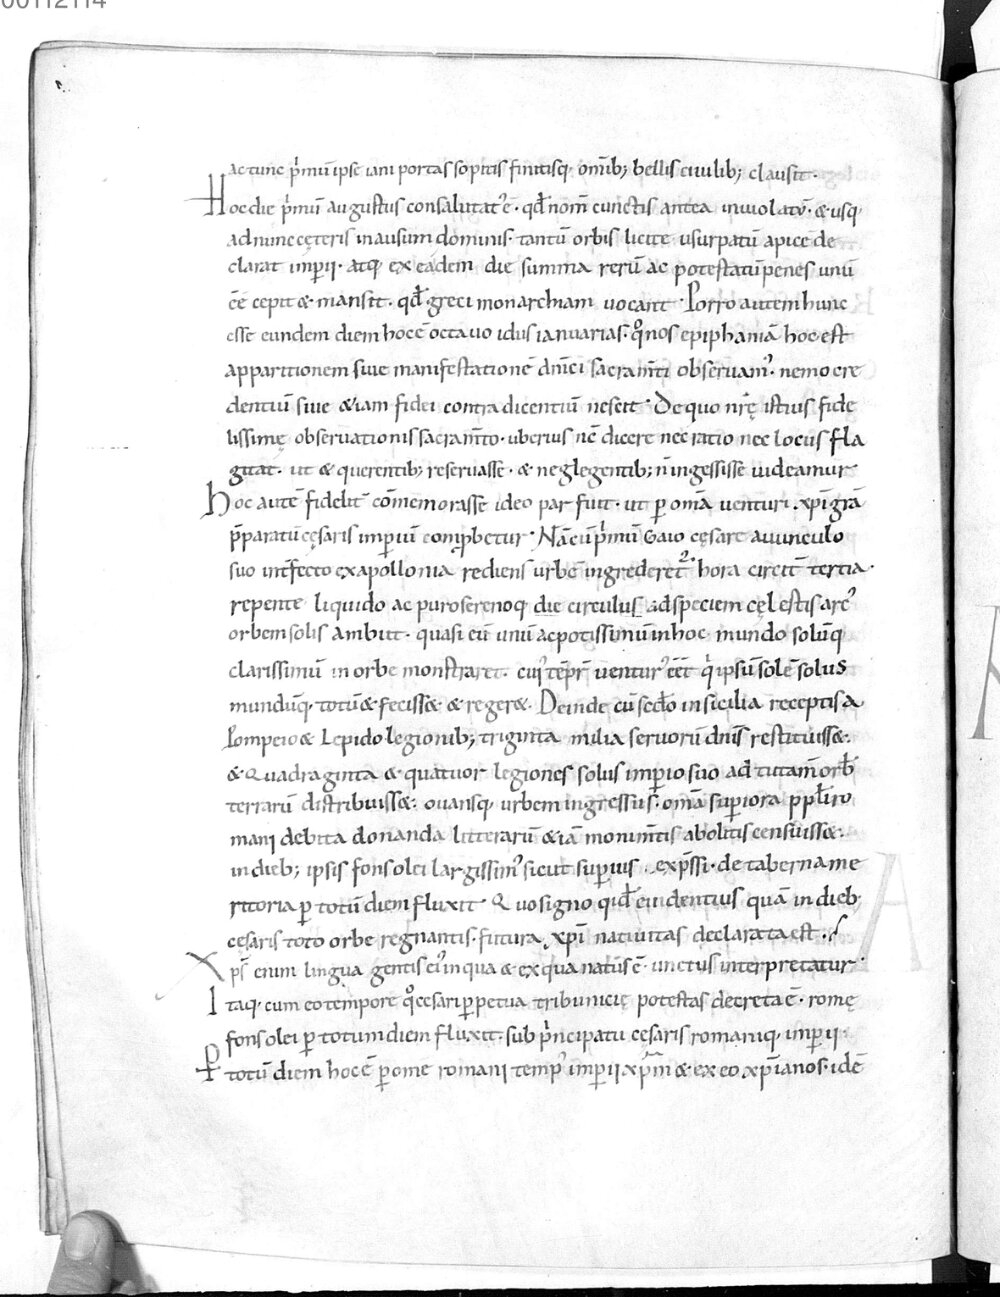 00112114
Hac tunc p̄mū ipse iani portas sopitis finitisq; omīb; bellis ciuilib; clausit.
Hoc die p̄mū augustus consalutat᾽ ē. qđ nom̄ cunctis antea inuiolatū. & usq;
ad nunc cęteris inausum dominis. tantū orbis licite usurpatū apice de
clarat imp̄ii. atq; ex eadem die summa rerū ac potestatū penes unū
cē cepit & mansit. qđ greci monarchiam uocant. Porro autem hunc
esse eundem diem hoc ē octauo idus ianuarias. q̊ nos epiphaniā hoc est
apparitionem siue manifestationē dn̄ici sacram̄ti obseruam᾽. nemo cre
dentiū siue &iam fidei contradicentiū nescit. De quo nr̄ę istius fide
lissimę obseruationis sacram̄to. uberius nc̄ dicere nec ratio nec locus fla
gitat. ut & querentib; reseruasse. & neglegentib; n̄ ingessisse uideamur
Hoc autē fidelit̄ cōmemorasse ideo par fuit. ut p̄ om̄a uenturi xp̄i grā
p̄paratū cęsaris imperiū comp̄betur. Nā cū p̄mū Gaio cęsare auunculo
suo int̄fecto ex apollonia rediens urbē ingrederet᾽. hora circit̄ tertia.
repente liquido ac puro serenoq; die circulus ad speciem cęlestis arc᾽
orbem solis ambiit. quasi eū unū ac potissimū in hoc mundo solūq;
clarissimū in orbe monstraret. cui᾽ tēpr̄ uentur᾽ eēt q̄ ipsū solē solus
mundūq; totū & feciss& & reger&. Deinde cū sec̄do in sicilia receptis a
Pompeio & Lepido legionib; triginta milia seruorū dn̄is restituiss&.
& Quadraginta & quatuor legiones solus imp̄io suo ad tutam̄ orb̄
terrarū distribuiss&. ouansq; urbem ingressus. om̄a sup̄iora p pp̄lī ro
mani debita donanda litterarū &iā monim̄tis abolitis censuiss&.
in dieb; ipsis fons olei largissim᾽ sicut sup̄ius exp̄ssi. de taberna me
ritoria p̄ totū diem fluxit. Quo signo qid euidentius quā in dieb;
cęsaris toto orbe regnantis. futura xp̄i natiuitas declarata est.
Xp̄s enim lingua gentis ei᾽ in qua & ex qua natus ē. unctus interpretatur.
Itaq; cum eo tempore q̊ cesari p̄petua tribunicię potestas decreta ē. romę
fons olei p̄ totum diem fluxit. sub p̄ncipatu cęsaris romanīq; imp̄ii.
P̄ totū diem hoc ē p̄ ome romani temp᾽ imp̄ii xp̄m & ex eo xp̄ianos. idē